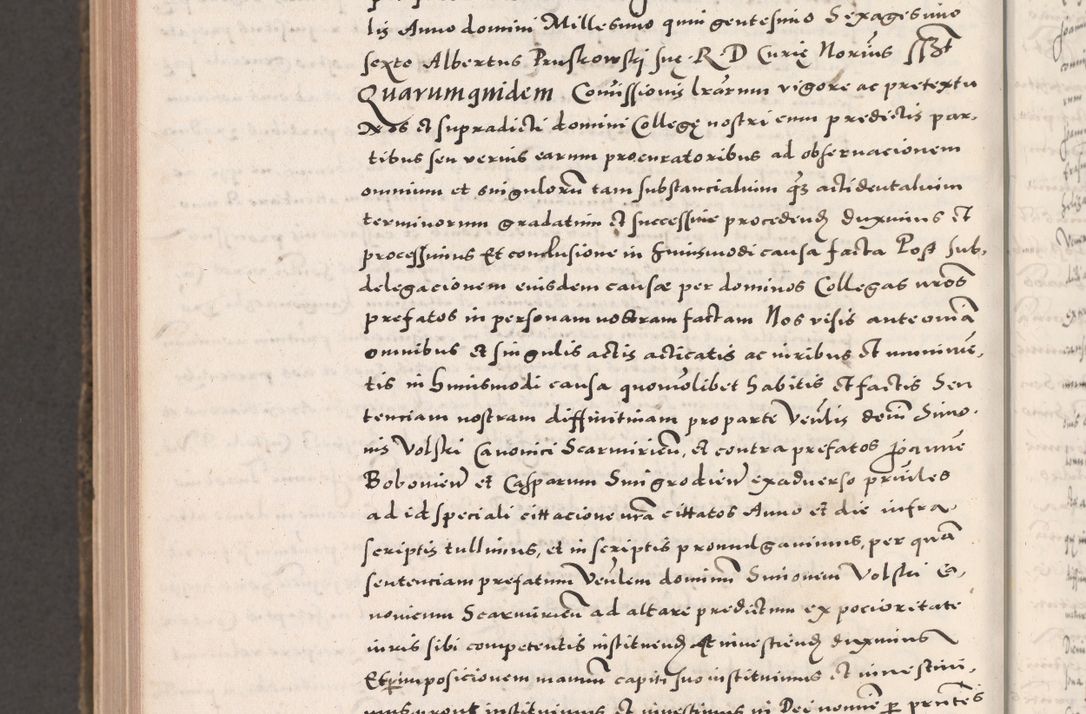 lis Anno domini Millesimo quingentesimo Sexagesimo
sexto Albertus Pruskowskj suę R D Curię Norius sst
Quarumquidem Comissionis lrarum vigore ac pretextu
Nos et supradicti domini Collegę nostri cum predictis par-
tibus seu verius earum procuratoribus ad obseruacionem
omnium et singulorum tam substancialium qz actidentalium
terminorum gradatim et successiue procedend duximus et
processimus Et conclusione in huiusmodi causa facta Post sub-
delegacionem eiusdem causæ per dominos Collegas nros
prefatos in personam nostram factam Nos visis ante omia
omnibus et singulis actis acticatis ac iuribus et munimen-
tis in huiusmodi causa quomolibet habitis et factis Sen
tenciam nostram diffinitiuam pro parte Venlis domi Simo-
nis Volski Canonici Scarmirien, et contra prefatos Joanne
Bobowien et Casparum Smigrodien ex aduerso principles
ad id speciali cittacione nra cittatos Anno et die infra-
scriptis tullimus, et in scriptis promulgauimus, per quam
sentenciam prefatum Venlem dominum Simonem Volski Ca-
nonicum Scarmirien ad altare predictum ex pocioritate
iuris sibi competentis instituend et inuestiend duximus
Et per imposicionem manuum capiti suo instituimus et inuestiui-
mus prout instituimus et inuestimus in Dei nomine per prntes